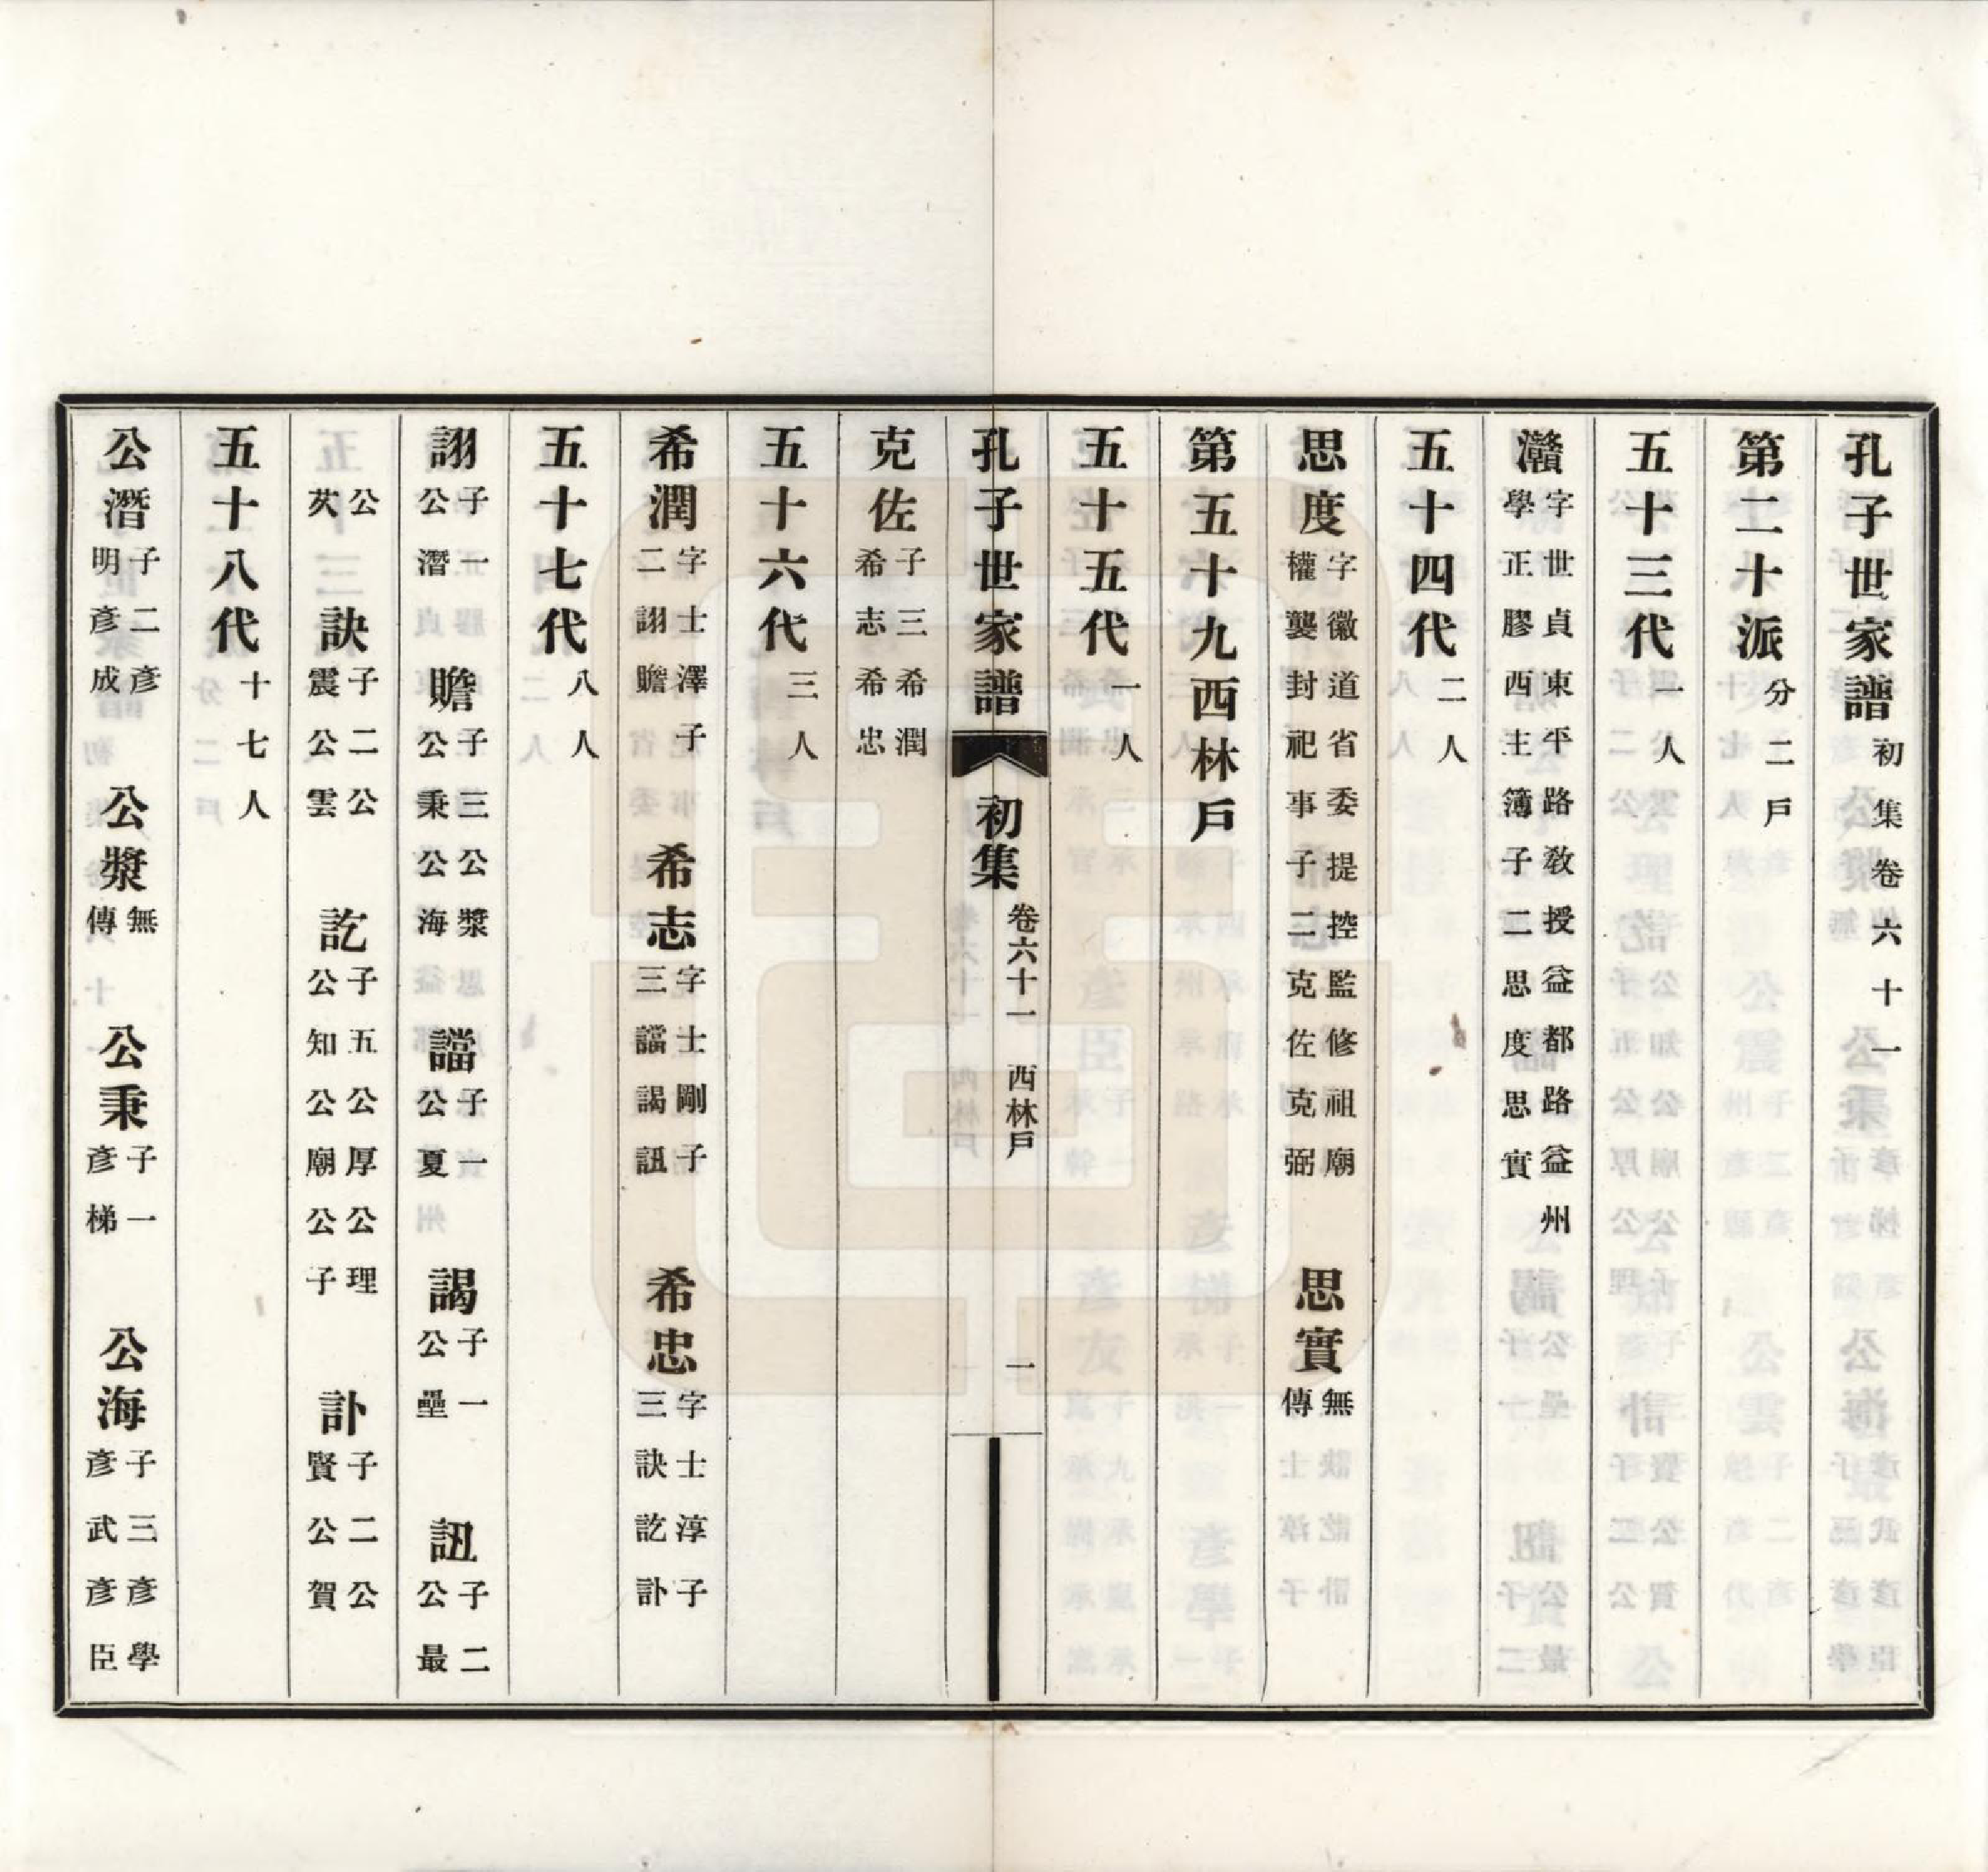 孔子世家譜初集卷六十一
第二十派分二戶
五十三代一人
灒字世貞東平路教授益都路益州學正膠西主簿子二思度思實
五十四代二人
思度字徽道省委提控監修祖廟權襲封祀事子二克佐克弼 思實無傳
第五十九西林戶
五十五代一人
孔子世家譜 初集 卷六十一 西林戶 一
克佐子三希潤希志希忠
五十六代三人
希潤字士澤子二詡贍 希志字士剛子三譡謁詛 希忠字士淳子三訣訖訃
五十七代八人
詡子一公潛 贍子三公漿公秉公海 譡子一公夏 謁子一公壘 詛子二公最
公苂 訣子二公震公雲 訖子五公厚公理公知公廟公子 訃子二公賢公賀
五十八代十七人
公潛子二彥明彥成 公漿無傳 公秉子一彥梯 公海子三彥學彥武彥臣